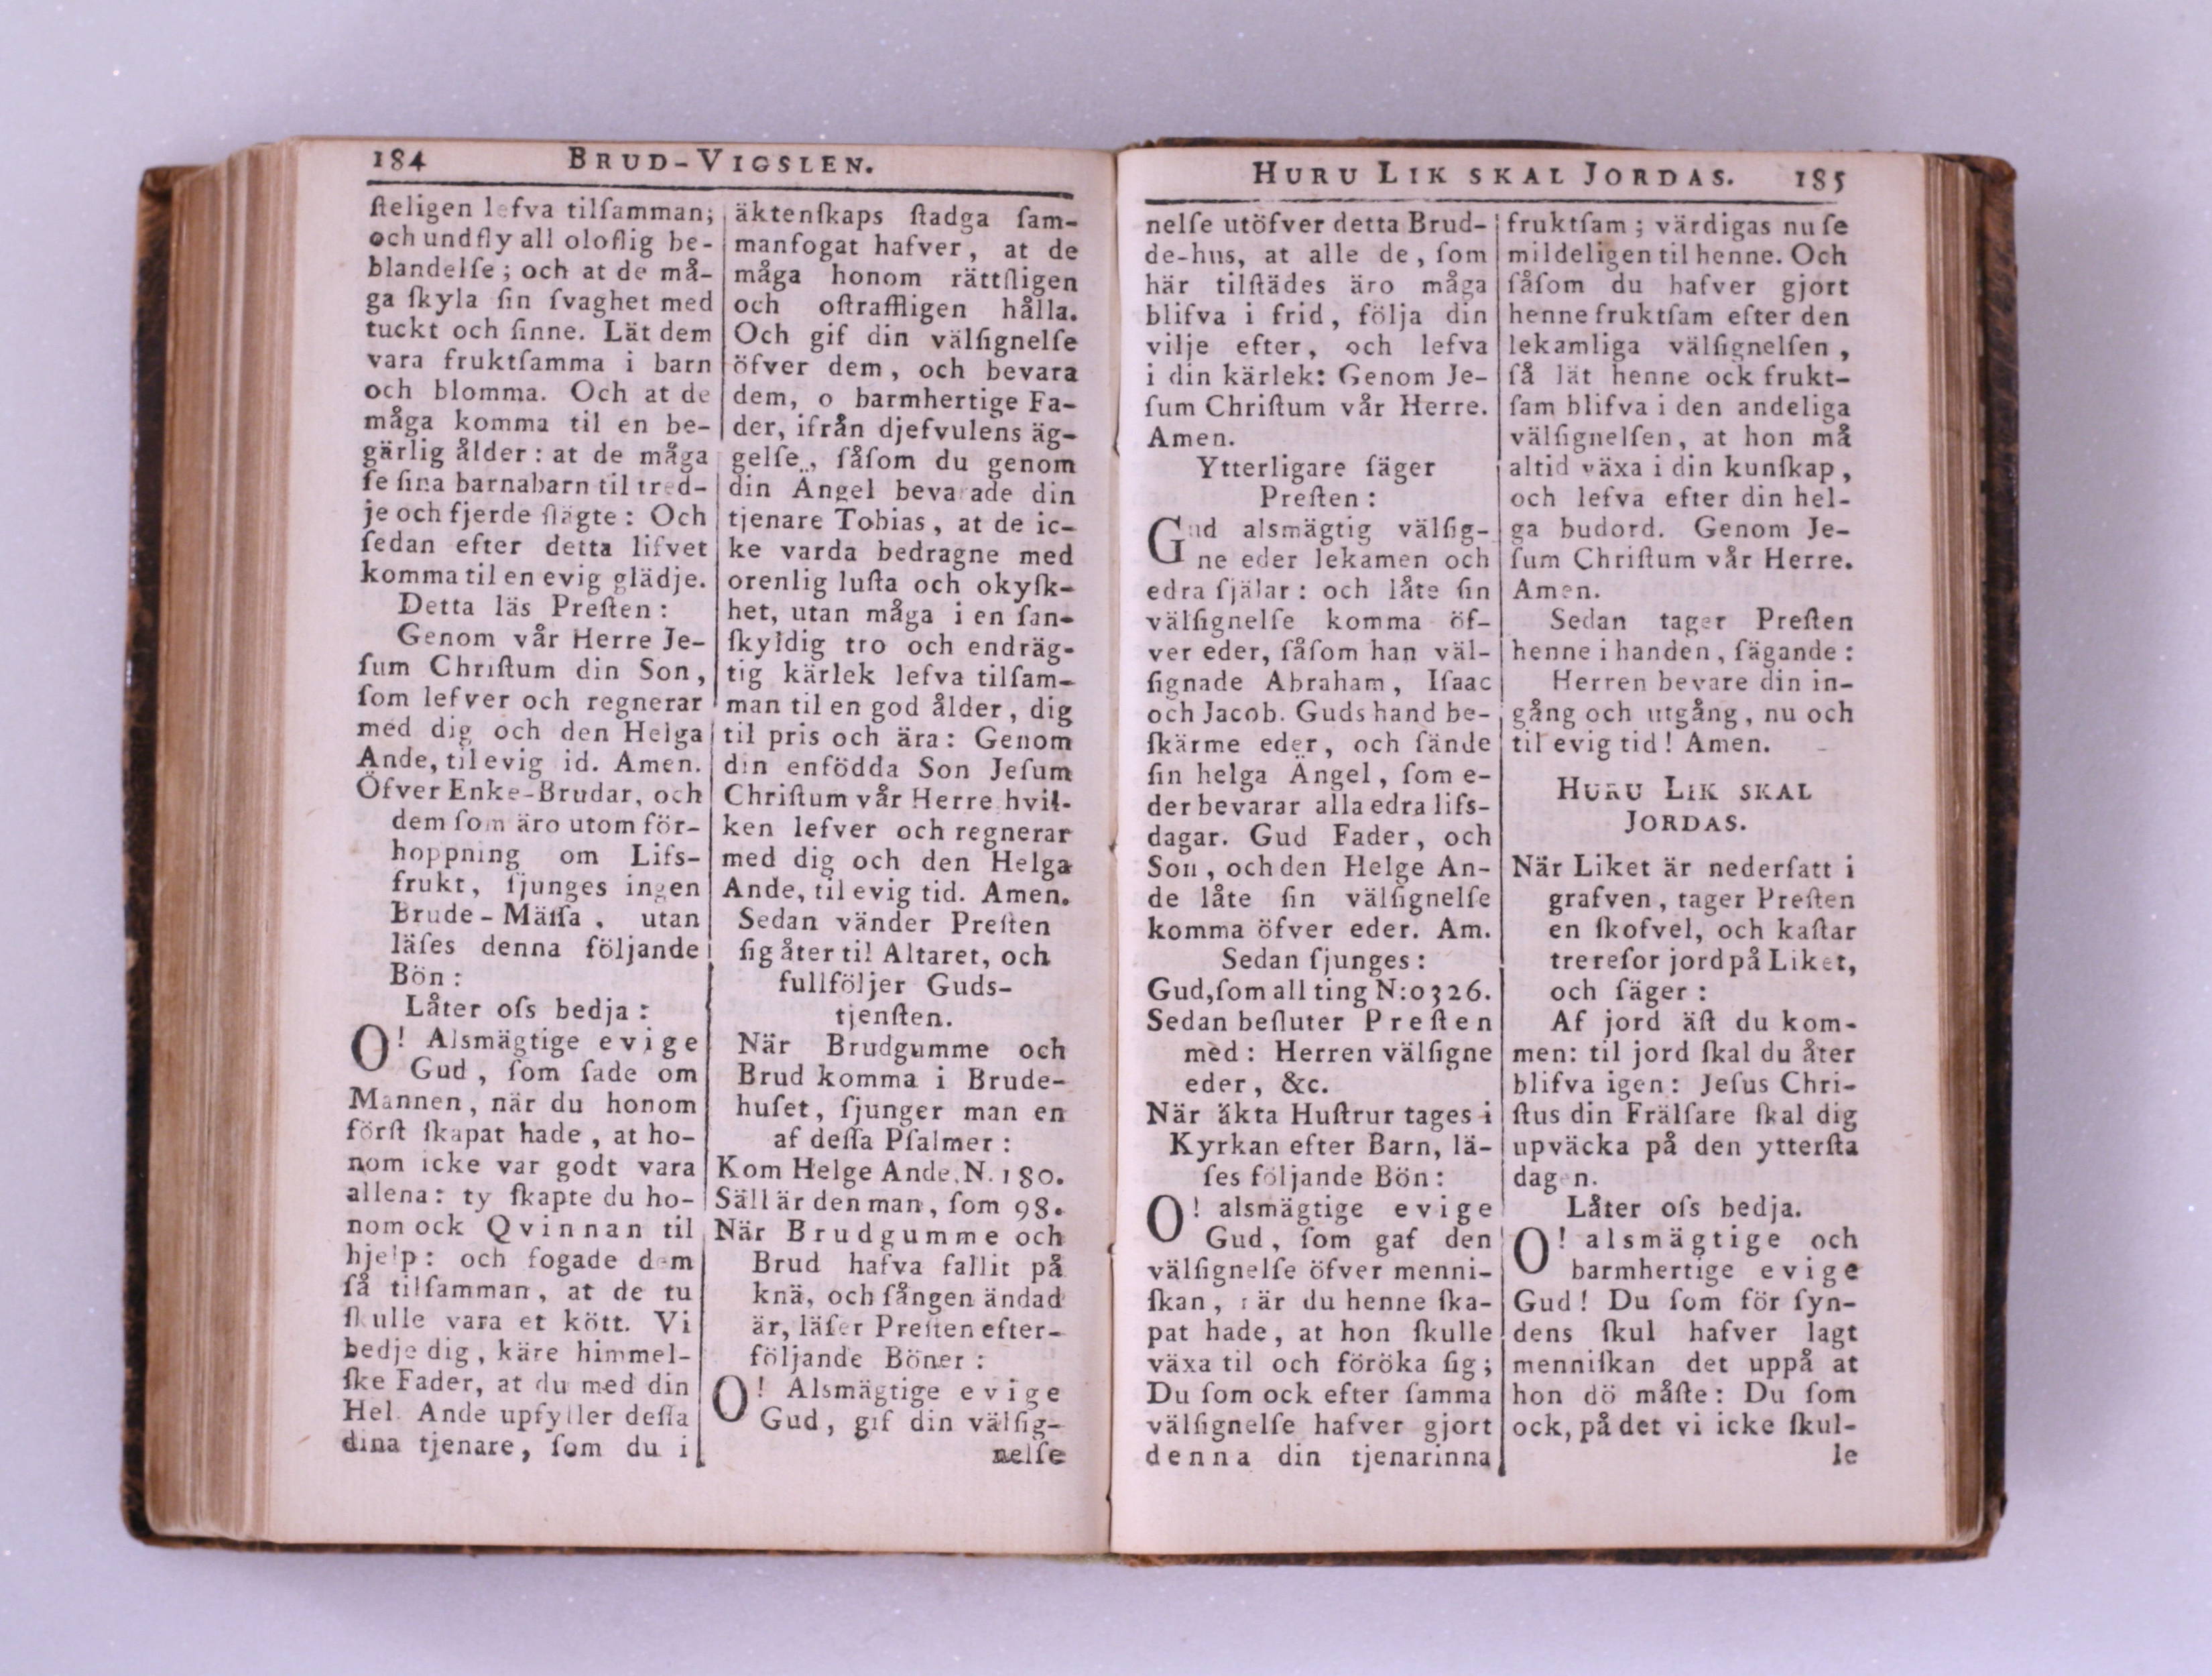 184 BRUD-VIGSLEN.
ſteligen lefva tilſamman;
och undfly all oloflig be-
blandelſe; och at de må-
ga ſkyla ſin ſvaghet med
tuckt och ſinne. Lät dem
vara fruktſamma i barn
och blomma. Och at de
måga komma til en be-
gärlig ålder: at de måga
ſe ſina barnabarn til tred-
je och fjerde ſlägte: Och
ſedan efter detta lifvet
komma til en evig glädje.
Detta läs Preſten:
Genom vår Herre Je-
ſum Chriſtum din Son,
ſom lefver och regnerar
med dig och den Helga
Ande, til evig id. Amen.
Öfver Enke-Brudar, och
dem ſom äro utom för-
hoppning om Lifs-
frukt, ſjunges ingen
Brude-Mäſſa, utan
läſes denna följande
Bön:
Låter oſs bedja:
O! Alsmägtige evige
Gud, ſom ſade om
Mannen, när du honom
förſt ſkapat hade, at ho-
nom icke var godt vara
allena: ty ſkapte du ho-
nom ock Qvinnan til
hjelp: och fogade dem
ſå tilſamman, at de tu
ſkulle vara et kött. Vi
bedje dig, käre himmel-
ſke Fader, at du med din
Hel. Ande upfyller deſſa
dina tjenare, ſom du i
äktenſkaps ſtadga ſam-
manfogat hafver, at de
måga honom rättſligen
och oſtraffligen hålla.
Och gif din välſignelſe
öfver dem, och bevara
dem, o barmhertige Fa-
der, ifrån djefvulens äg-
gelſe, ſåſom du genom
din Ängel bevarade din
tjenare Tobias, at de ic-
ke varda bedragne med
orenlig luſta och okyſk-
het, utan måga i en ſan-
ſkyldig tro och endräg-
tig kärlek lefva tilſam-
man til en god ålder, dig
til pris och ära: Genom
din enfödda Son Jeſum
Chriſtum vår Herre hvil-
ken lefver och regnerar
med dig och den Helga
Ande, til evig tid. Amen.
Sedan vänder Preſten
ſig åter til Altaret, och
fullföljer Guds-
tjenſten.
När Brudgumme och
Brud komma i Brude-
huſet, ſjunger man en
af deſſa Pſalmer:
Kom Helge Ande. N. 180.
Säll är den man, ſom 98.
När Brudgumme och
Brud hafva fallit på
knä, och ſången ändad
är, läſer Preſten efter-
följande Böner:
O! Alsmägtige evige
Gud, gif din välſig-
nelſe
HURU LIK SKAL JORDAS. 185
nelſe utöfver detta Brud-
de-hus, at alle de, ſom
här tilſtädes äro måga
blifva i frid, följa din
vilje efter, och lefva
i din kärlek: Genom Je-
ſum Chriſtum vår Herre.
Amen.
Ytterligare ſäger
Preſten:
Gud alsmägtig välſig-
ne eder lekamen och
edra ſjälar: och låte ſin
välſignelſe komma öf-
ver eder, ſåſom han väl-
ſignade Abraham, Iſaac
och Jacob. Guds hand be-
ſkärme eder, och ſände
ſin helga Ängel, ſom e-
der bevarar alla edra lifs-
dagar. Gud Fader, och
Son, och den Helge An-
de låte ſin välſignelſe
komma öfver eder. Am.
Sedan ſjunges:
Gud, ſom all ting N:o 326.
Sedan beſluter Preſten
med: Herren välſigne
eder, &c.
När äkta Huſtrur tages i
Kyrkan efter Barn, lä-
ſes följande Bön:
O! alsmägtige evige
Gud, ſom gaf den
välſignelſe öfver menni-
ſkan, när du henne ſka-
pat hade, at hon ſkulle
växa til och föröka ſig;
Du ſom ock efter ſamma
välſignelſe hafver gjort
denna din tjenarinna
fruktſam; värdigas nu ſe
mildeligen til henne. Och
ſåſom du hafver gjort
henne fruktſam efter den
lekamliga välſignelſen,
ſå lät henne ock frukt-
ſam blifva i den andeliga
välſignelſen, at hon må
altid växa i din kunſkap,
och lefva efter din hel-
ga budord. Genom Je-
ſum Chriſtum vår Herre.
Amen.
Sedan tager Preſten
henne i handen, ſägande:
Herren bevare din in-
gång och utgång, nu och
til evig tid! Amen.
HURU LIK SKAL
JORDAS.
När Liket är nederſatt i
grafven, tager Preſten
en ſkofvel, och kaſtar
tre reſor jord på Liket,
och ſäger:
Af jord äſt du kom-
men: til jord ſkal du åter
blifva igen: Jeſus Chri-
ſtus din Frälſare ſkal dig
upväcka på den ytterſta
dagen.
Låter oſs bedja.
O! alsmägtige och
barmhertige evige
Gud! Du ſom för ſyn-
dens ſkul hafver lagt
menniſkan det uppå at
hon dö måſte: Du ſom
ock, på det vi icke ſkul-
le